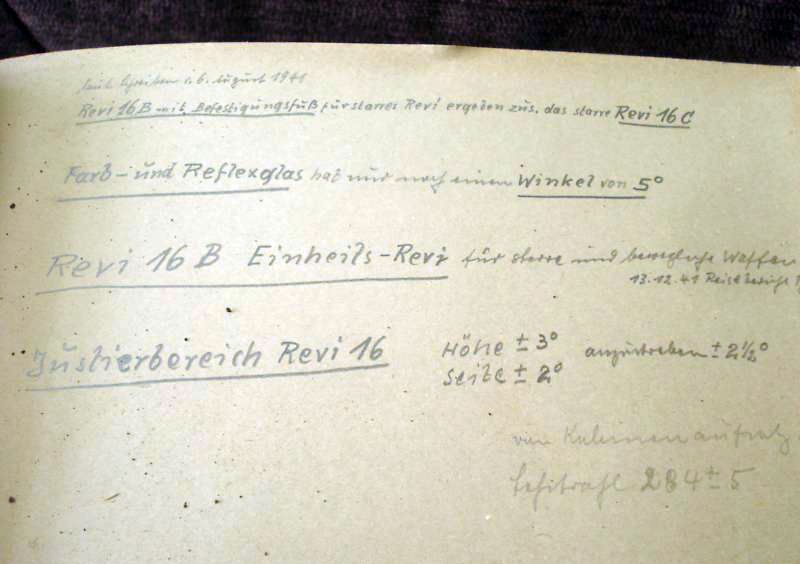 laut Schreiben v. 6. August 1941
Revi 16 B mit Befestigungsfuß für starres Revi ergeben zus. das starre Revi 16 C
Farb- und Reflexglas hat nur noch einen Winkel von 5°
Revi 16 B Einheits-Revi für starre und bewegliche Waffen
13.12.41 Reisebericht
Justierbereich Revi 16 Höhe ± 3° anzustreben ± 2½°
Seite ± 2°
284 ± 5